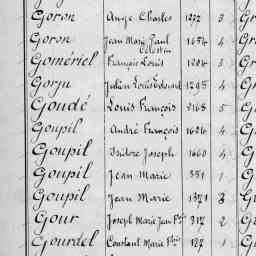 Goron Ange Charles 1272 3
Goron Jean Marie Paul Célestin 1654 4
Gomériel François Louis 1204 3
Gorju Julien Louis Edouard 1295 4
Goudé Louis François 2168 5
Goupil André François 1626 4
Goupil Isidore Joseph 1660 4
Goupil Jean Marie 351 1
Goupil Jean Marie 1371 3
Gour Joseph Marie Jean 317 2
Gourdel Constant Marie 127 1